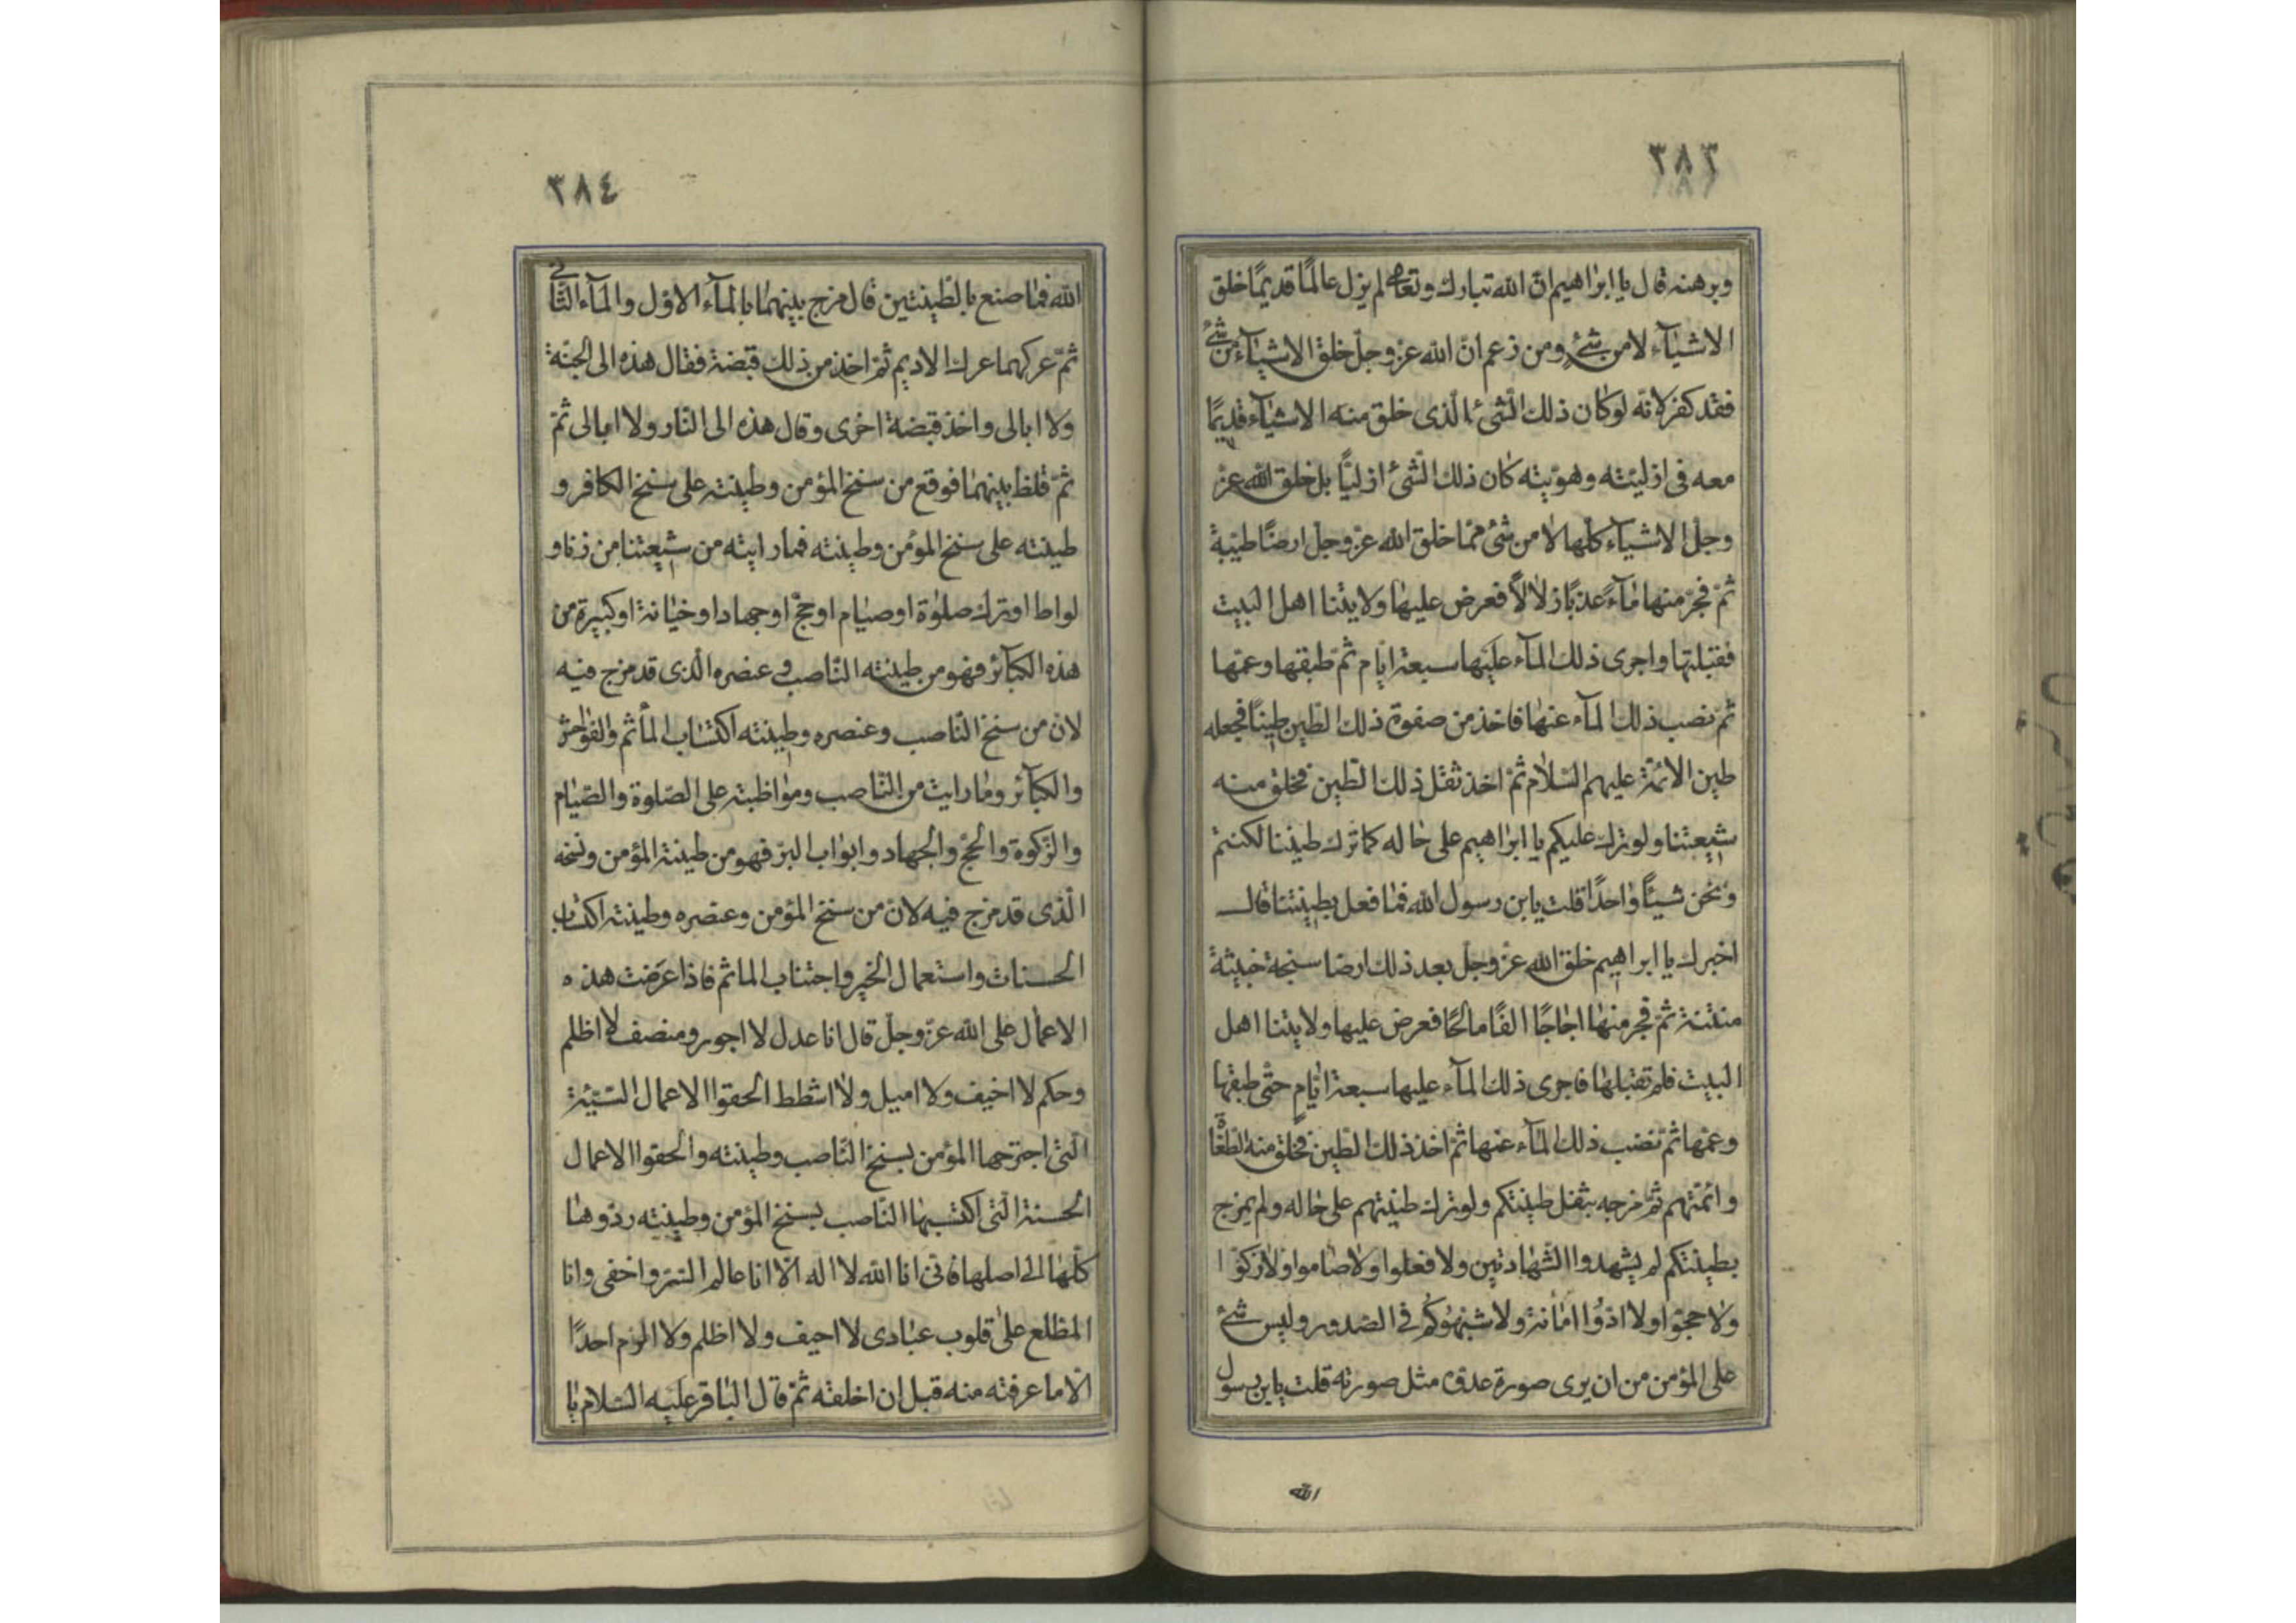 ٣٨٣
وبرهنه قال يا ابراهيم ان الله تبارك وتعالى لم يزل عالمًا قديمًا خلق
الاشيآء لا من شئ ومن زعم انّ الله عزّ وجلّ خلق الاشيآء من شئ
فقد كفر لانّه لو كان ذلك الشئ الّذى خلق منه الاشيآء قديمًا
معه فى ازليّته وهويّته كان ذلك الشئ ازليًّا بل خلق الله عزّ
وجلّ الاشيآء كلّها لا من شئ فممّا خلق الله عزّ وجلّ ارضًا طيّبة
ثمّ فجّر منها مآءً عذبًا زلالًا فعرض عليها ولايتنا اهل البيت
فقبلتها واجرى ذلك المآء عليها سبعة ايّام ثمّ طبقها وعمّها
ثمّ نصب ذلك المآء عنها فاخذ من صفوة ذلك الطّين طينًا فجعله
طين الائمّة عليهم السّلام ثمّ اخذ ثفل ذلك الطّين فخلق منه
شيعتنا ولو ترك عليكم يا ابراهيم على حاله كما ترك طينتنا لكنتم
ونحن شيئًا واحدًا قلت يابن رسول الله فما فعل بطينتنا قال
اخبرك يا ابراهيم خلق الله عزّ وجلّ بعد ذلك ارضا سبخة خبيثة
منتنة ثمّ فجر منها اجاجًا مالحًا فعرض عليها ولايتنا اهل
البيت فلم تقبلها فاجرى ذلك المآء عليها سبعة ايّام حتّى طبقها
وعمّها ثمّ نضب ذلك المآء عنها ثمّ اخذ ذلك الطّين فخلق منه الطّغاة
وائمّتهم ثمّ مزجه بثفل طينتكم ولو ترك طينتهم على حاله ولم يمزج
بطينتكم لم يشهدوا الشّهادتين ولا فعلوا ولا صاموا ولا زكوّا
ولا حجّوا ولا ادّوا امانة ولا شبهوكم فى الصّدور وليس شئ
على المؤمن من ان يرى صورة عدوّه مثل صورته قلت يابن رسول
الله
٣٨٤
الله فما صنع بالطّينتين قال مزج بينهما بالمآء الاوّل والمآء الثّانى
ثمّ عركهما عرك الاديم ثمّ اخذ من ذلك قبضة فقال هذه الى الجنّة
ولا ابالى واخذ قبضة اخرى وقال هذه الى النّار ولا ابالى ثمّ
ثمّ خلط بينهما فوقع من سنخ المؤمن وطينته على سنخ الكافر و
طينته على سنخ المؤمن وطينته فما رايته من شيعتنا من زنا و
لواط او ترك صلوة او صيام او حجّ او جهاد او خيانة او كبيرة من
هذه الكبآئر فهو من طينته النّاصب و عنصره الّذى قد مزج فيه
لانّ من سنخ النّاصب وعنصره وطينته اكتساب المأثم والفواحش
والكبآئر وما رايت من النّاصب ومواظبته على الصّلوة والصّيام
والزّكوة والحجّ والجهاد وابواب البرّ فهو من طينة المؤمن وسنخه
الّذى قد مزج فيه لانّ من سنخ المؤمن وعنصره وطينته اكتساب
الحسنات واستعمال الخير واجتناب الماثم فاذا عَرَضت هذه
الاعمال على الله عزّ وجلّ قال انا عدل لا اجور ومنصف لا اظلم
وحكم لا اخيف ولا اميل ولا اشطط الحقوا الاعمال السّيّئة
الّتى اجترحها المؤمن بسنخ النّاصب وطينته والحقوا الاعمال
الحسنة الّتى اكتسبها النّاصب بسنخ المؤمن وطينته ردّوها
كلّها الى اصلها فانّى انا الله لا اله الّا انا عالم السّرّ واخفى وانا
المطلع على قلوب عبادى لا احيف ولا اظلم ولا الزم احدًا
الّا ما عرفته منه قبل ان اخلقه ثمّ قال الباقر عليه السّلام يا